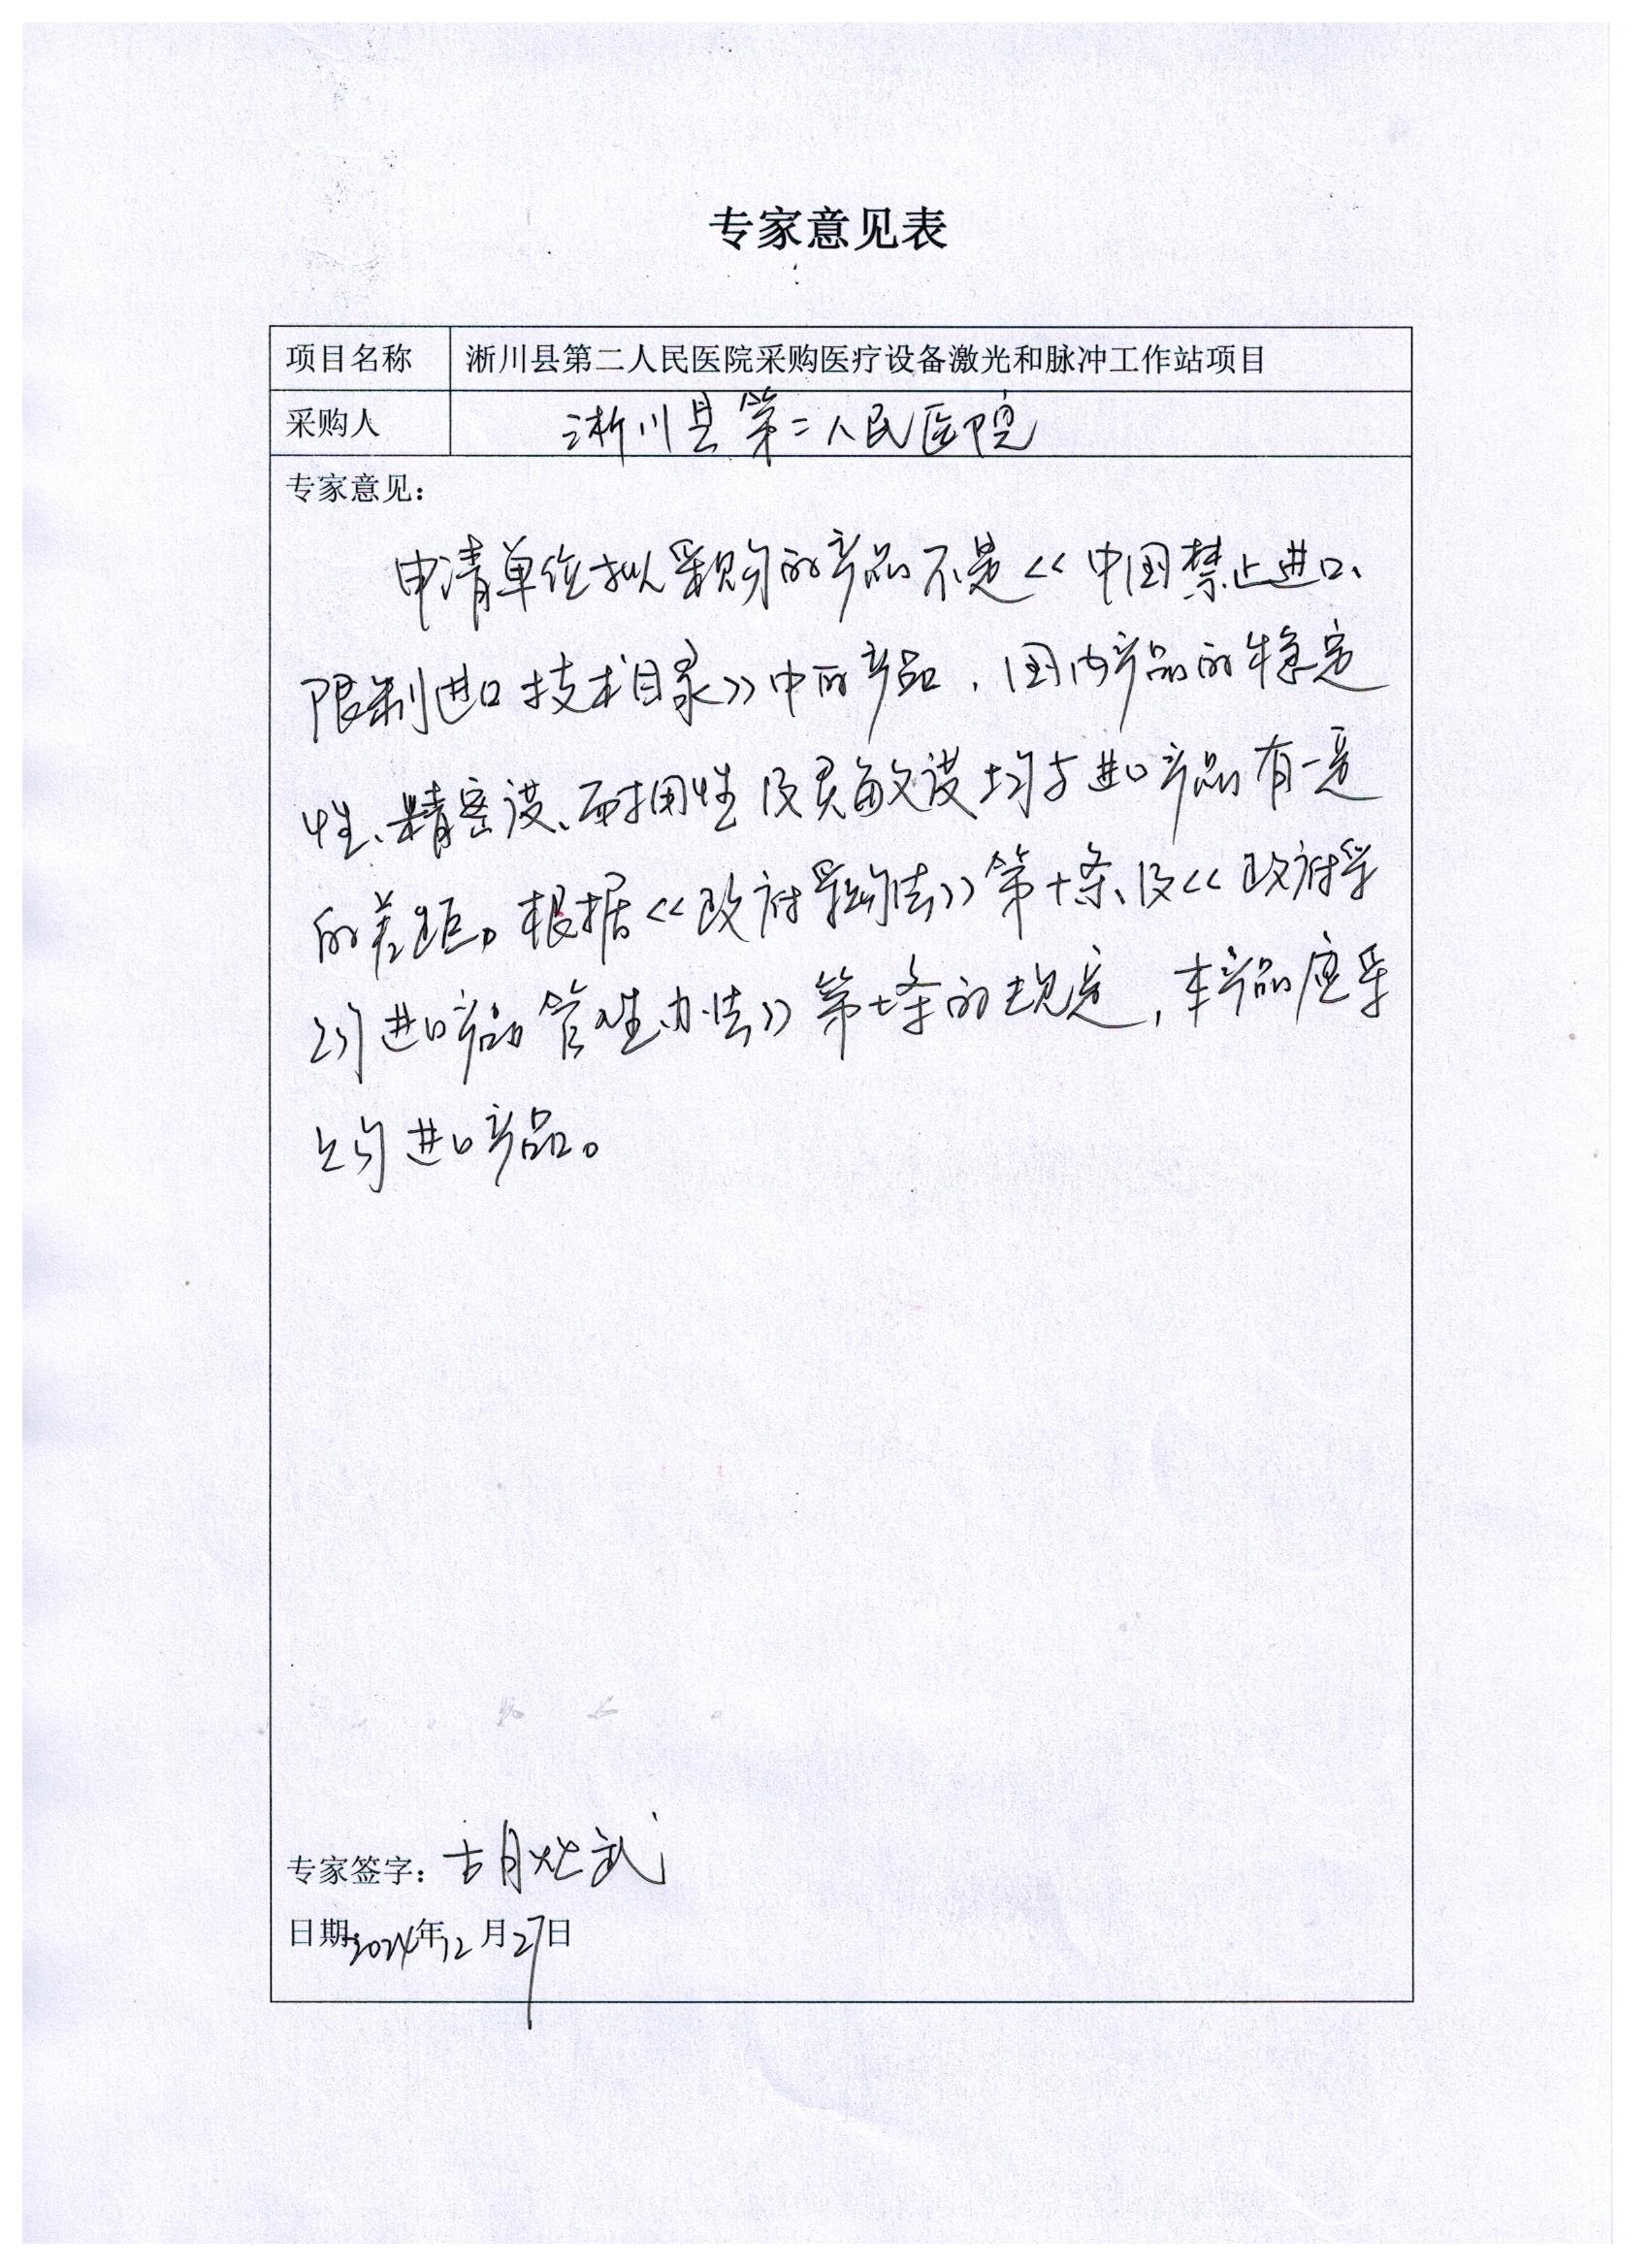 专家意见表
项目名称 淅川县第二人民医院采购医疗设备激光和脉冲工作站项目
采购人 淅川县第二人民医院
专家意见：
申请单位拟采购的产品不是《中国禁止进口、
限制进口技术目录》中的产品，国内产品的稳定
性、精密度、耐用性及灵敏度均与进口产品有一定
的差距。根据《政府采购法》第十条、及《政府采
购进口产品管理办法》第七条的规定，本产品应采
购进口产品。
专家签字：胡 武
日期：2024年12月27日